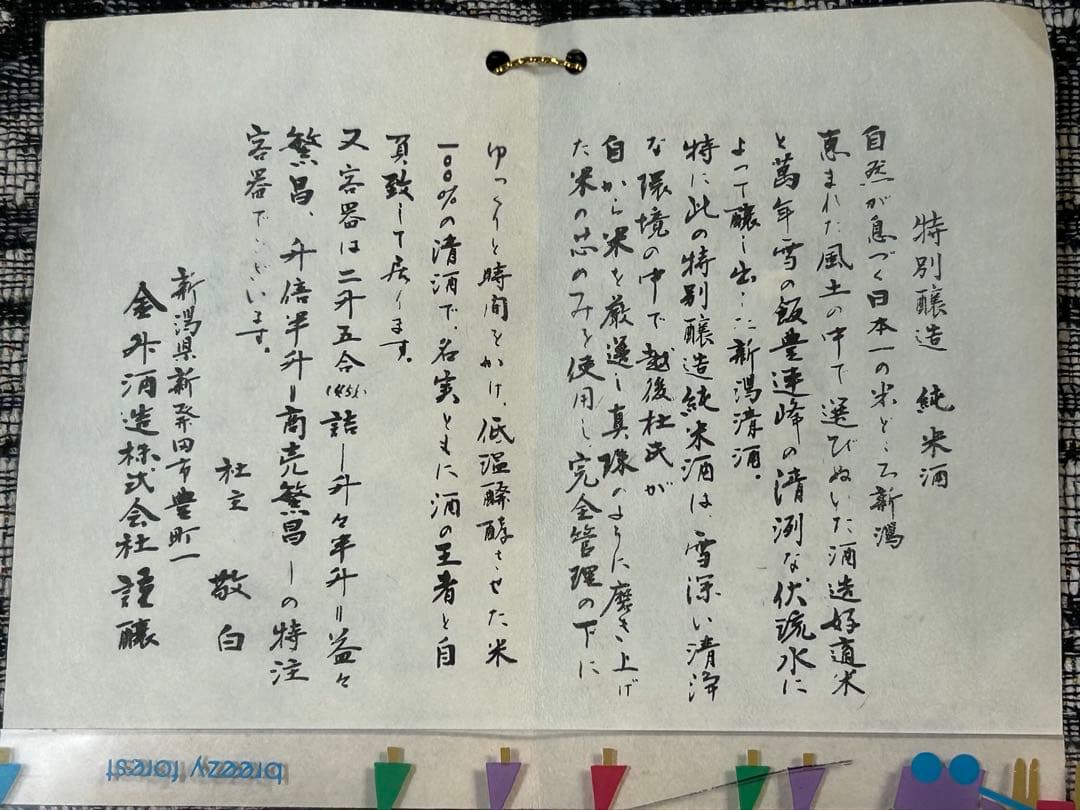 特別醸造 純米酒
自然が息づく日本一の米どころ新潟
恵まれた風土の中で選びぬいた酒造好適米
と萬年雪の飯豊連峰の清冽な伏流水に
よって醸し出した新潟清酒。
特に此の特別醸造純米酒は、雪深い清浄
な環境の中で越後杜氏が
自から米を厳選し真珠のように磨き上げ
た米の芯のみを使用し完全管理の下に
ゆっくりと時間をかけ、低温醗酵させた米
一〇〇%の清酒で、名実ともに酒の王者と自
負致して居ります。
又容器は二升五合(4.5L)詰ー升々半升=益々
繁昌、升倍半升=商売繁昌ーの特注
容器でございます。
新潟県新発田市豊町一
社主 敬白
金升酒造株式会社 謹醸
breezy forest